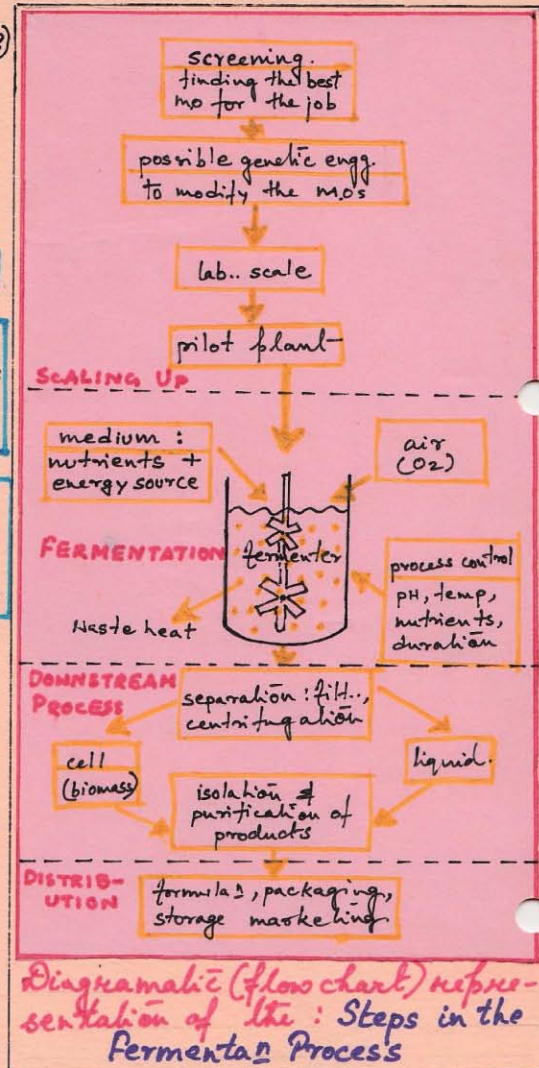 screening.
finding the best
mo for the job
possible genetic engg.
to modify the m.o's
lab.. scale
pilot plant
SCALING UP
medium :
nutrients +
energy source
air
(O2)
FERMENTATION
fermenter
process control
pH, temp,
nutrients,
duration
Waste heat
DOWNSTREAM
PROCESS
separation : filt..,
centrifugation
cell
(biomass)
liquid.
isolation &
purification of
products
DISTRIB-
UTION
formulan, packaging,
storage marketing
Diagramatic (flow chart) repre-
sentation of the : Steps in the
Fermentan Process